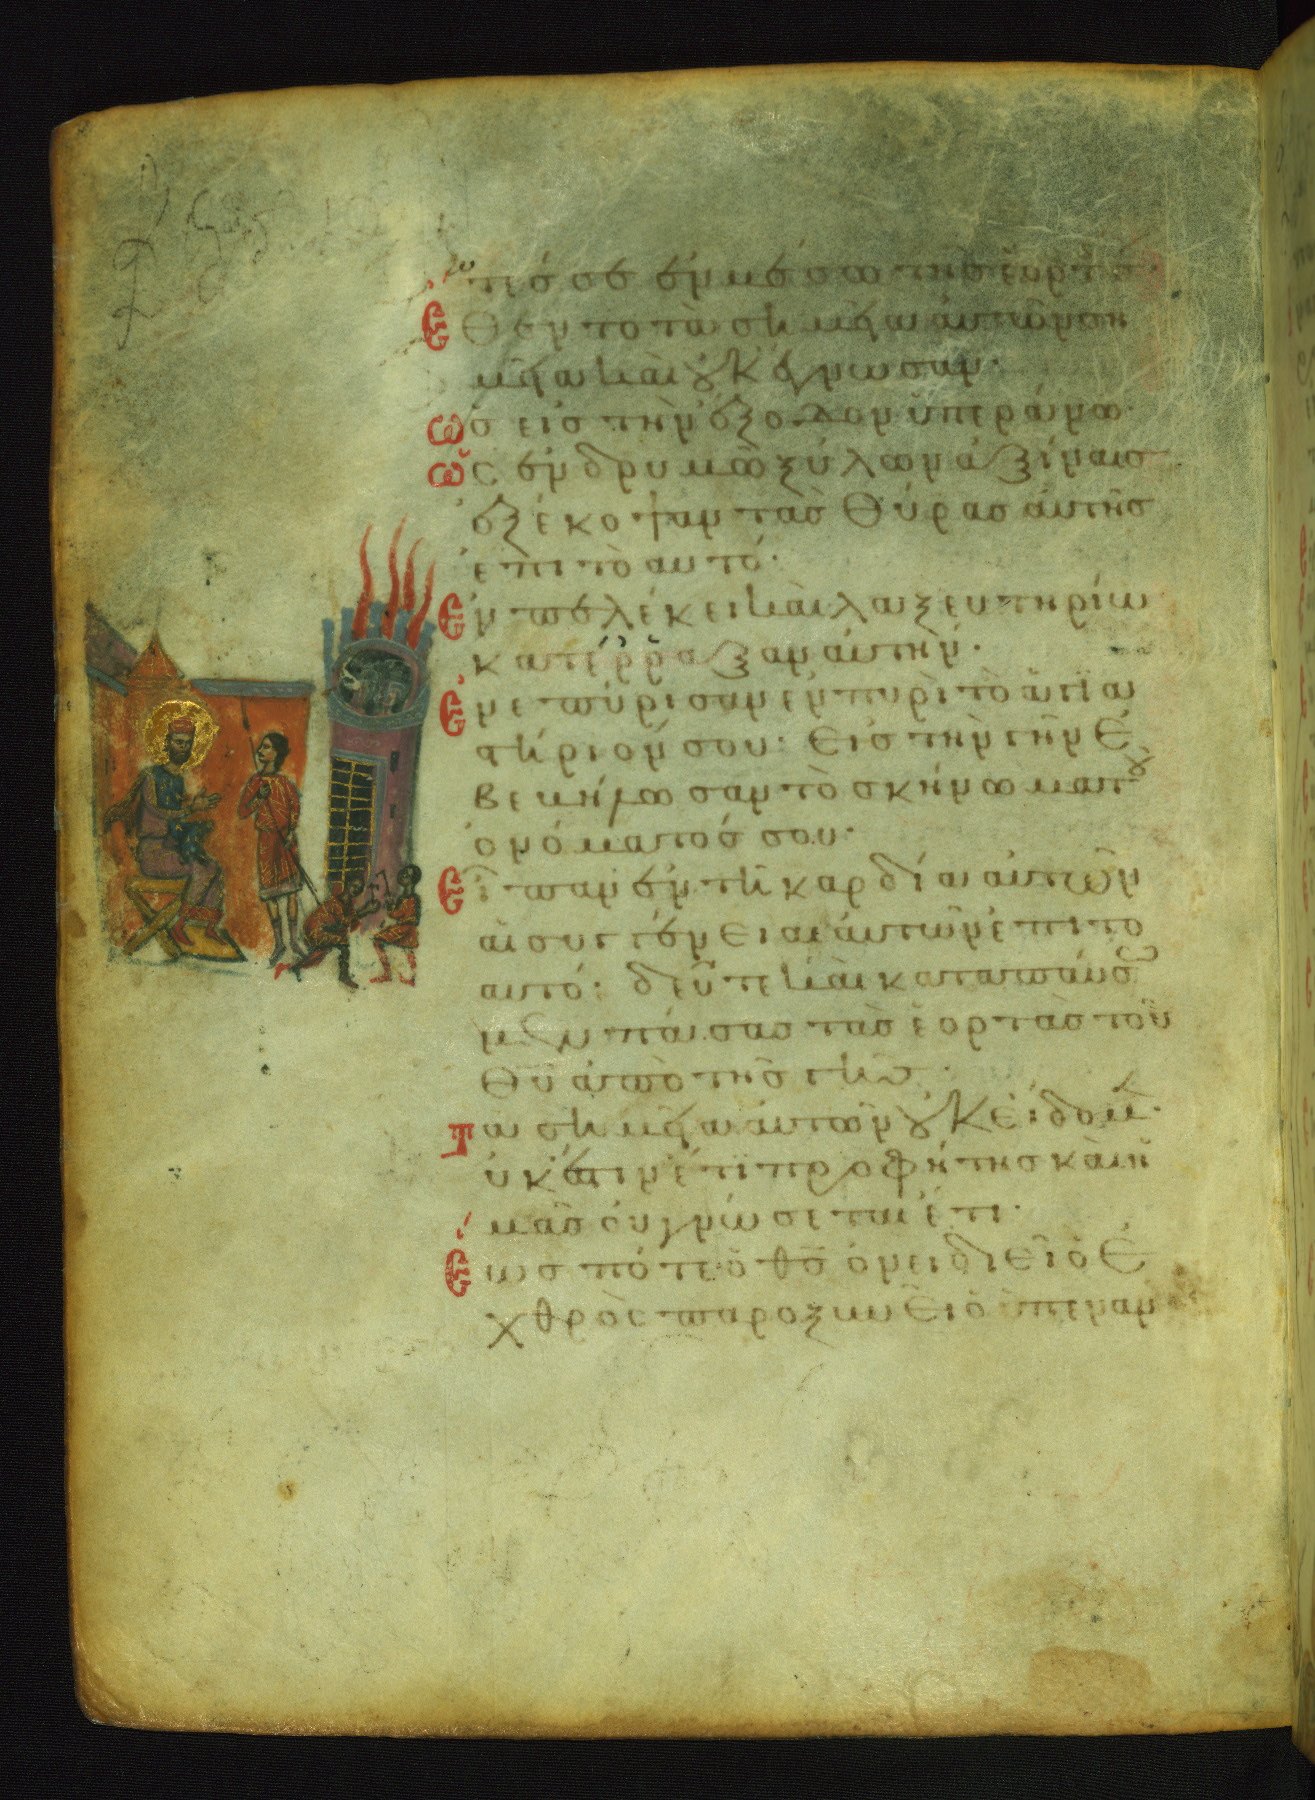 πός σε ἐν μέσω τῆς ἑορτῆς·
Ἔθεντο τὰ σημεῖα αὐτῶν ση
μεῖα καὶ οὐκ ἔγνωσαν·
ὡς εἰς τὴν ἔξοδον ὑπεράνω·
ὡς ἐν δρυμῶ ξύλων ἀξίναις
ἐξέκοψαν τὰς θύρας αὐτῆς
ἐπιτὸαυτό·
Ἐν πελέκει καὶ λαξευτηρίω
κατέρραξαν αὐτήν·
Ἐνεπύρισαν ἐν πυρὶ τὸ ἁγια
στήριόν σου: εἰς τὴν γῆν ἐ
βεβήλωσαν τὸ σκήνωμα τοῦ
ὀνόματός σου·
Εἶπαν ἐν τῆ καρδίαι αὐτῶν
αἱ συγγένειαι αὐτῶν ἐπιτο
αυτό: δεῦτε καὶ καταπαύσω
μεν πάσας τὰς ἑορτὰς τοῦ
θυ ἀπὸ τῆς γῆς·
Τὰ σημεῖα αὐτῶν οὐκ εἴδομεν·
οὐκ ἔστιν ἔτι προφήτης καὶ ἡ
μᾶς οὐ γνώσεται ἔτι·
Ἕως πότε ὁ θς ὀνειδιεῖ ὁ ἐ
χθρὸς παροξυνεῖ ὁ ὑπεναν